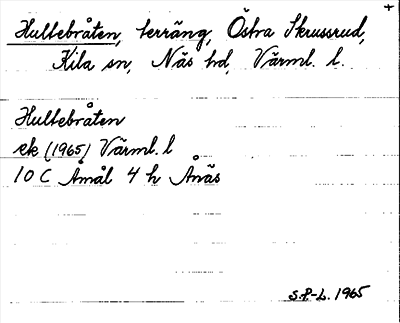 +
Hultebråten, terräng, Östra Skrussrud,
Kila sn, Näs hd, Värml. l.
Hultebråten
ek (1965) Värml. l
10 C Åmål 4 h Ånäs
S.P-L. 1965